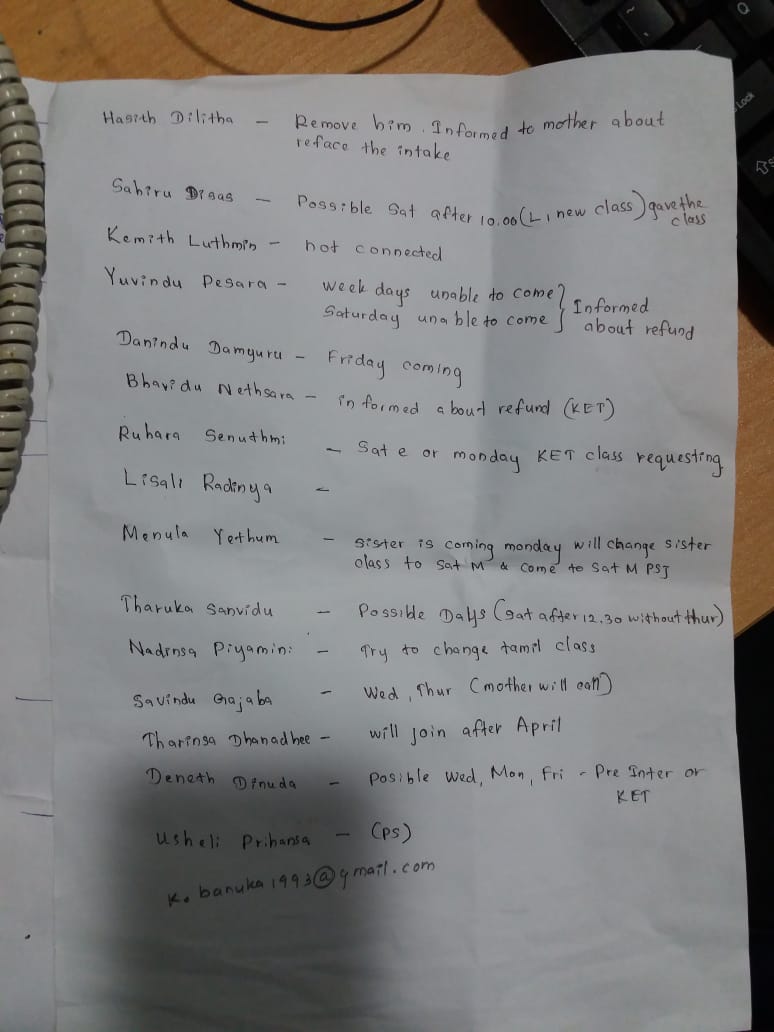 Hasith Dilitha - Remove him. Informed to mother about
reface the intake
Sahiru Disas - Possible Sat after 10.00 (L1 new class) gave the
class
Kemith Luthmin - not connected
Yuvindu Pesara - week days unable to come } Informed
Saturday unable to come } about refund
Danindu Damyuru - Friday coming
Bhavidu Nethsara - informed about refund (KET)
Ruhara Senuthmi - Sat e or monday KET class requesting
Lisali Radinya -
Menula Yethum - sister is coming monday will change sister
class to Sat M & come to Sat M PSJ
Tharuka Sanvidu - Possible Days (Sat after 12.30 without thur)
Nadinsa Piyamini - Try to change tamil class
Savindu Gajaba - Wed, Thur (mother will call)
Tharinsa Dhanadhee - will join after April
Deneth Dinuda - Posible Wed, Mon, Fri - Pre Inter or
KET
Usheli Prihansa - (PS)
K.banuka1993@gmail.com
Q
Lock